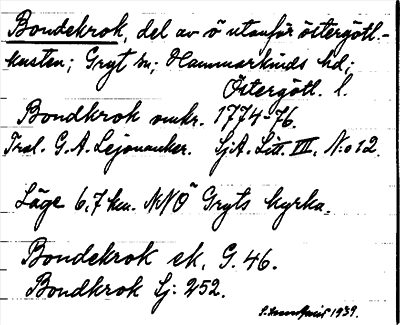 Bondekrok, del av ö utanför östergötl.-
kusten; Gryt sn; Hammarkinds hd;
Östergötl. l.
Bondkrok omkr. 1774-76.
Trol. G. A. Lejonancker. SjA. Litt. III. N:o 12.
Läge 6,7 km. NNO Gryts kyrka.
Bondekrok ek. G. 46.
Bondkrok Sj: 252.
1939.